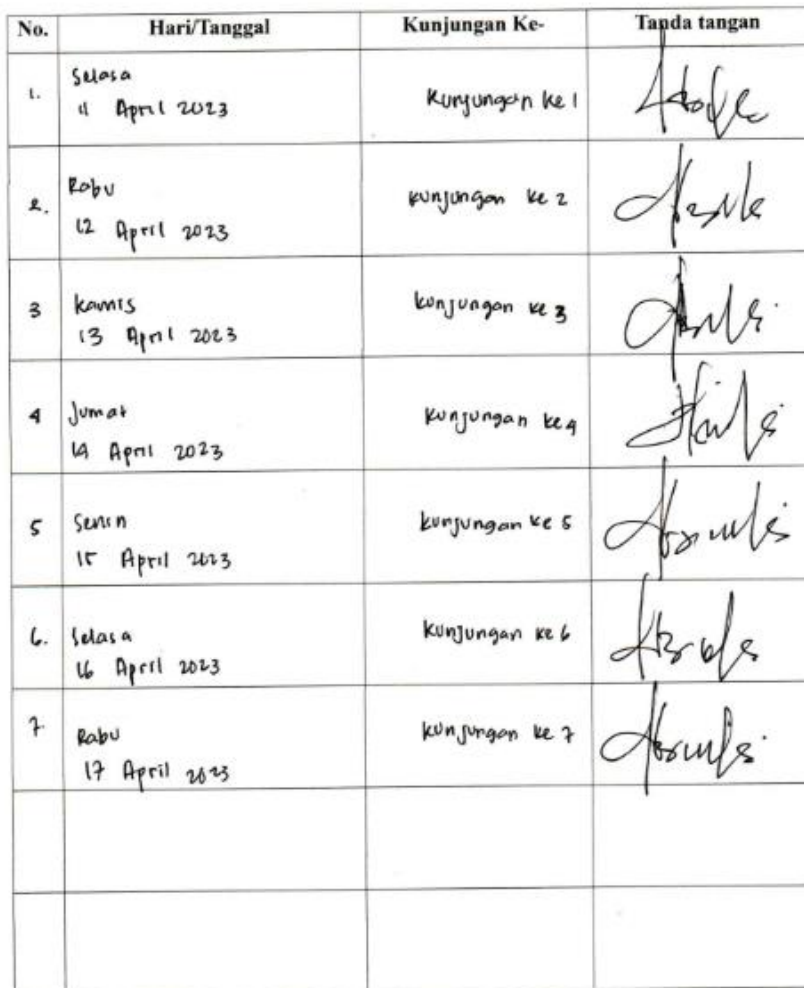 No. Hari/Tanggal Kunjungan Ke- Tanda tangan
1. Selasa
11 April 2023 Kunjungan ke 1
2. Rabu
12 April 2023 kunjungan ke 2
3 Kamis
13 April 2023 kunjungan ke 3
4 Jumat
14 April 2023 kunjungan ke 4
5 Senin
15 April 2023 kunjungan ke 5
6. Selasa
16 April 2023 kunjungan ke 6
7. Rabu
17 April 2023 kunjungan ke 7